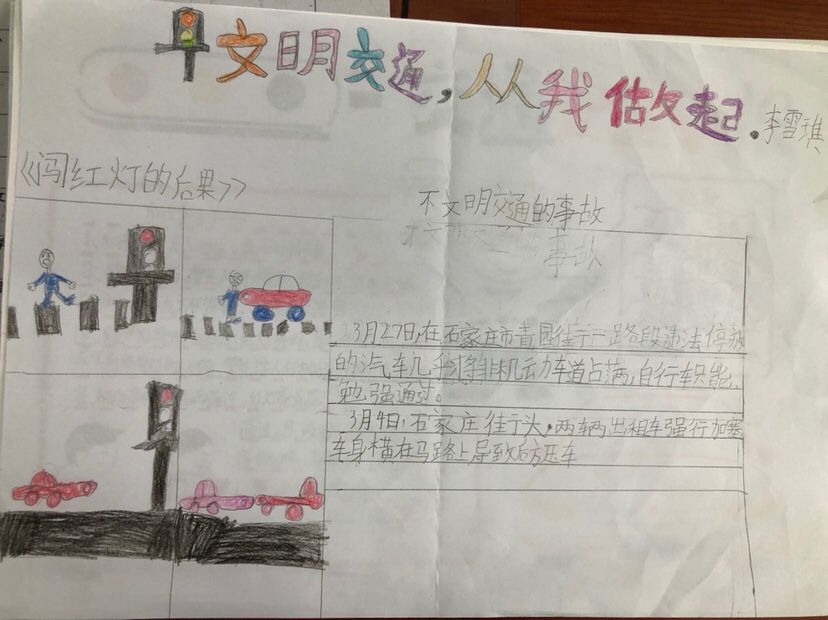 文明交通，从我做起.李雪琪
《闯红灯的后果》
不文明交通的事故
事故
3月27日，在石家庄市青园街一路段违法停放
的汽车几乎将非机动车道占满，自行车只能
勉强通过。
3月4日，石家庄街头，两辆出租车强行加塞
车身横在马路上导致后方压车